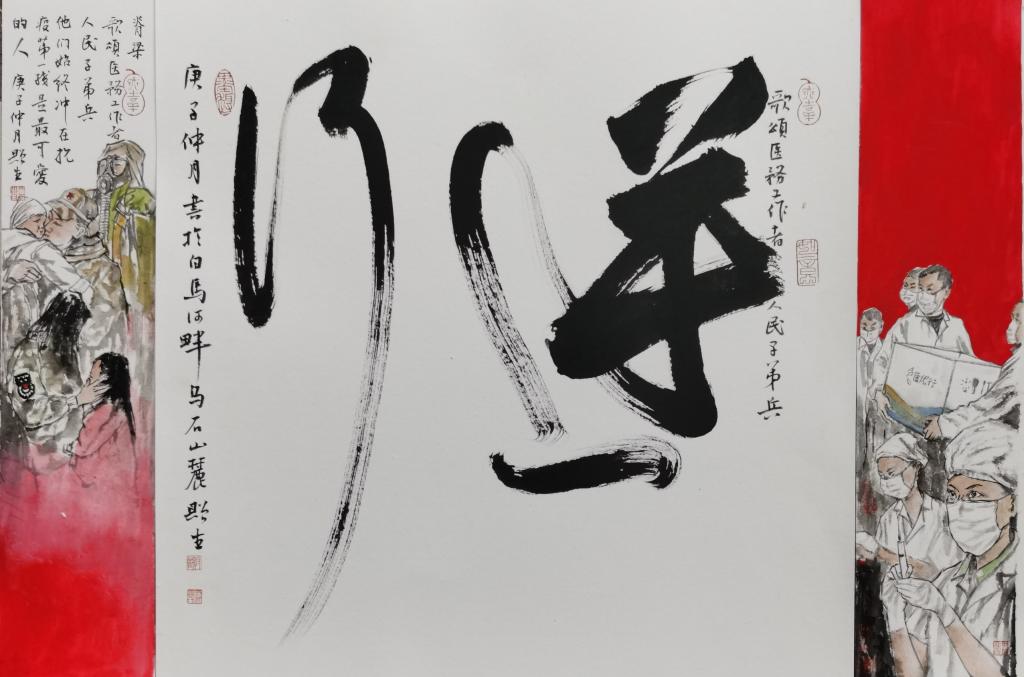 歌頌医務工作者
人民子弟兵
逆行
庚子仲月書於白馬河畔乌石山麓
脊梁
歌頌医務工作者
人民子弟兵
他们始终冲在抗
疫第一线是最可愛
的人 庚子仲月